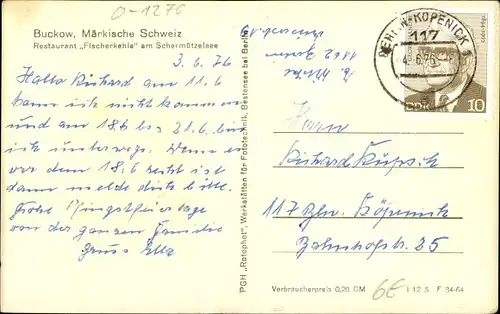 O-1276
Buckow, Märkische Schweiz
Restaurant „Fischerkehle" am Schermützelsee
3.6.76
Hallo Richard am 11.6
kann ich nicht kommen
und am 18.6 bis 21.6 bin
ich unterwegs. Wenn es
vor dem 18.6 recht ist
dann melde dich bitte.
Frohe Pfingstfeiertage
von der ganzen Familie
Gruss Ella
PGH „Rotophot", Werkstätten für Fototechnik, Bestensee bei Berlin
1162 Berlin
BERLIN-KÖPENICK 1
117
4.6.76
DDR 10
Herrn
Richard Kupsch
117 Bln. Köpenick
Bahnhofstr. 25
Verbraucherpreis 0,20 DM
6E
I 12 5 F 34-64